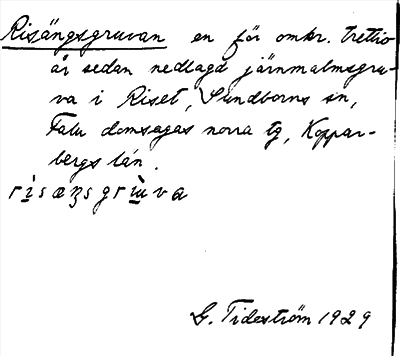 Risängsgruvan en för omkr. trettio
år sedan nedlagd järnmalmsgru-
va i Riset, Sundborns sn,
Falu domsagas norra tg, Koppar-
bergs län.
rìsæŋsgrùva
G. Tideström 1929